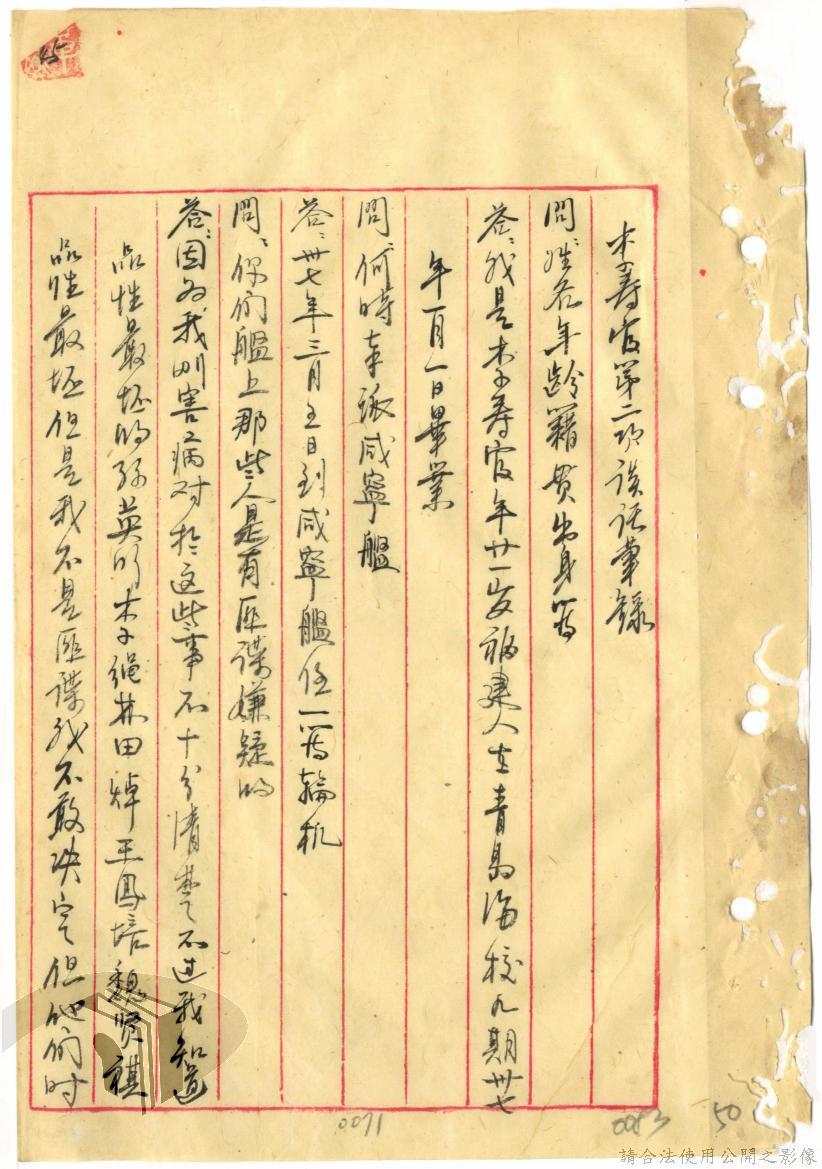 李壽官第二次談話筆錄
問：姓名年齡籍貫出身等
答：我是李壽官年廿一岁福建人在青島海校九期卅七
年一月一日畢業
問：何時奉派咸寧艦
答：卅七年三月五日到咸寧艦任一等輪机
問：你們艦上那些人是有匪諜嫌疑的
答：因为我刚害病对於这些事不十分清楚不过我知道
品性最坏的孫英 李繩林田焯王鳳培魏贤祺
品性最坏但是我不是匪諜我不敢决定但他們时
0071
0083
50
45
請合法使用公開之影像